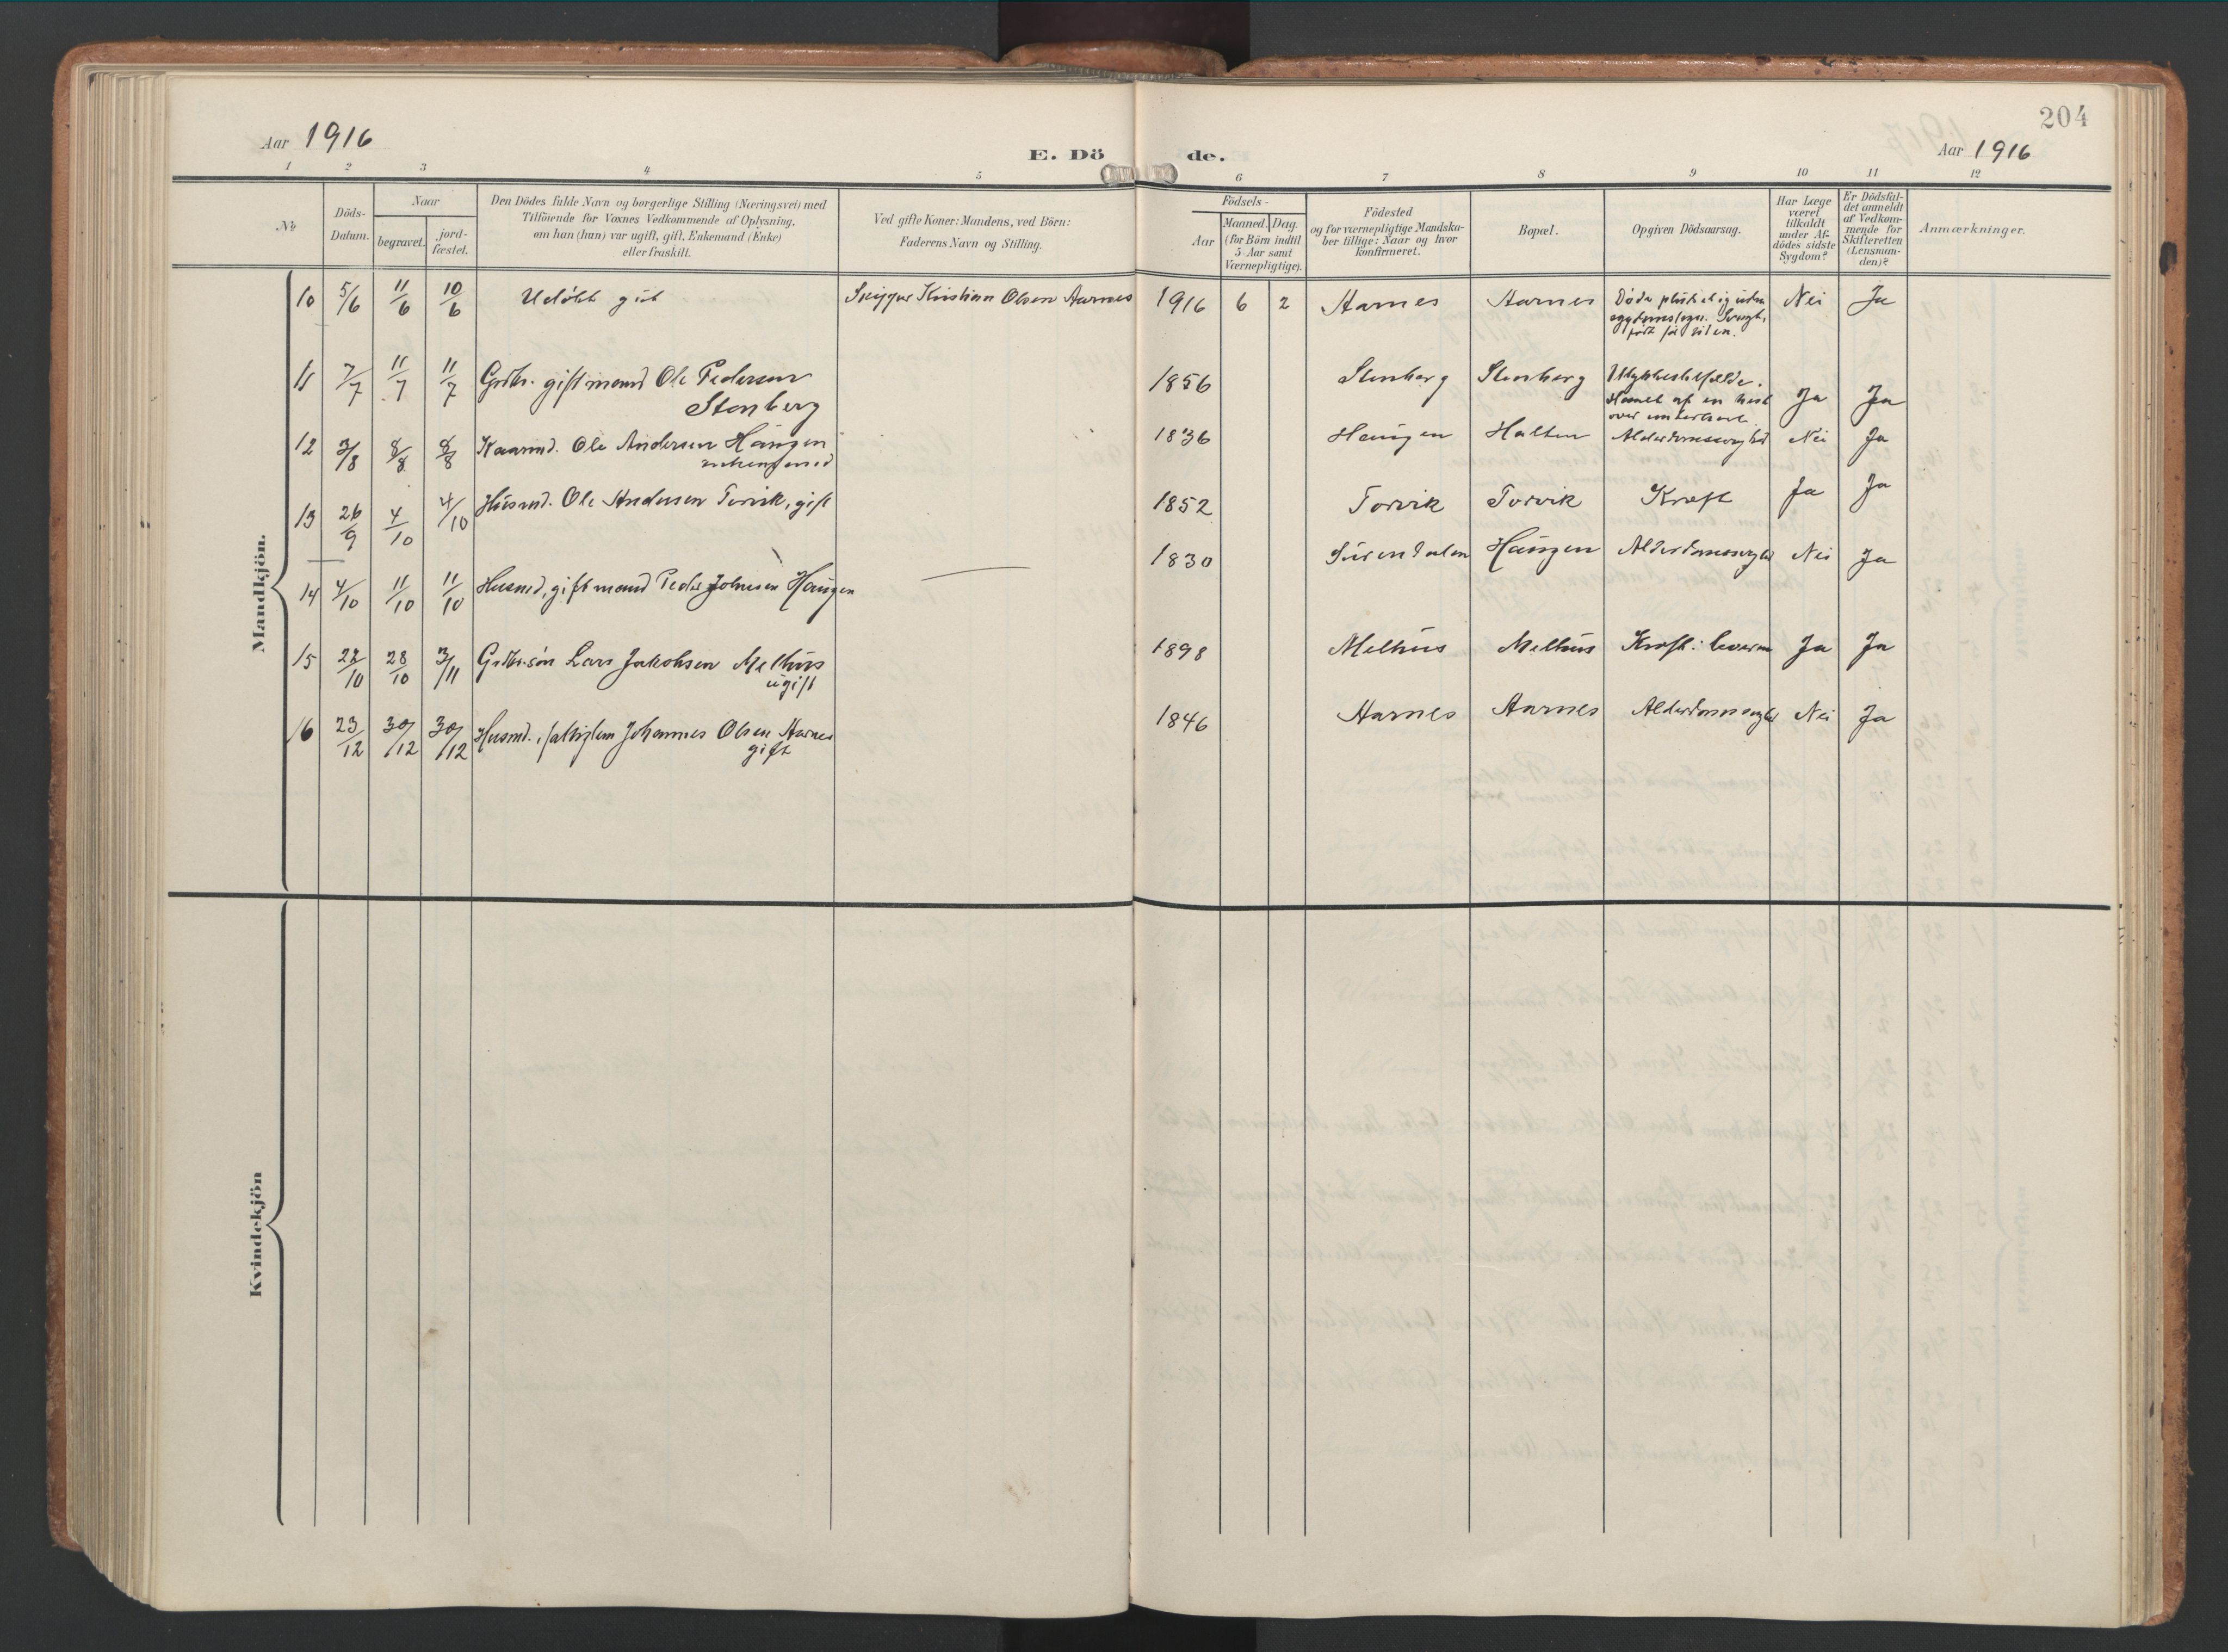 204
Aar 1916
E. Dö de.
Aar 1916
1 2 3 4 5 6 7 8 9 10 11 12
No
Döds-
Datum.
Naar
begravet.
jord-
fæstet.
Den Dödes fulde Navn og borgerlige Stilling (Næringsvei) med
Tilföiende for Voxnes Vedkommende af Oplysning,
om han (hun) var ugift, gift, Enkemand (Enke)
eller fraskilt.
Ved gifte Koner: Mandens, ved Börn:
Faderens Navn og Stilling.
Födsels-
Aar
Maaned. Dag.
(for Börn indtil
5 Aar samt
Værnepligtige).
Födested
og for værnepligtige Mandska-
ber tillige: Naar og hvor
konfirmeret.
Bopæl.
Opgiven Dödsaarsag.
Har Læge
været
tilkaldt
under Af-
dödes sidste
Sygdom?
Er Dödsfal-
det anmeldt
af Vedkom-
mende for
Skifteretten
(Lensman-
den)?
Anmærkninger.
Mandkjön.
10 5/6 11/6 10/6 Udöbt gut Skipper Kristian Olsen Aarnes 1916 6 2 Aarnes Aarnes Döde pludselig uden Nei Ja
födt for tiden.
11 7/7 11/7 11/7 Grdbr. gift mand Ole Pedersen 1856 Stenberg Stenberg Ulykkestilfælde. Ja Ja
Stenberg
af en hest
12 3/8 8/8 8/8 Kaarmd. Ole Andersen Haugen 1836 Haugen Halten Alderdomssvaghed Nei Ja
enkemand
13 26/9 4/10 4/10 Husmd. Ole Andersen Torvik, gift 1852 Torvik Torvik Kræft Ja Ja
14 4/10 11/10 11/10 Husmd, gift mand Peder Johnsen Haugen 1830 Surendalen Haugen Alderdomssvaghed Nei Ja
15 22/10 28/10 3/11 Grdbr.sön Lars Jakobsen Melhus 1898 Melhus Melhus Kræft i leveren Ja Ja
ugift
16 23/12 30/12 30/12 Husmd., fattiglem Johannes Olsen Aarnes 1846 Aarnes Aarnes Alderdomssvaghed Nei Ja
gift
Kvindekjön